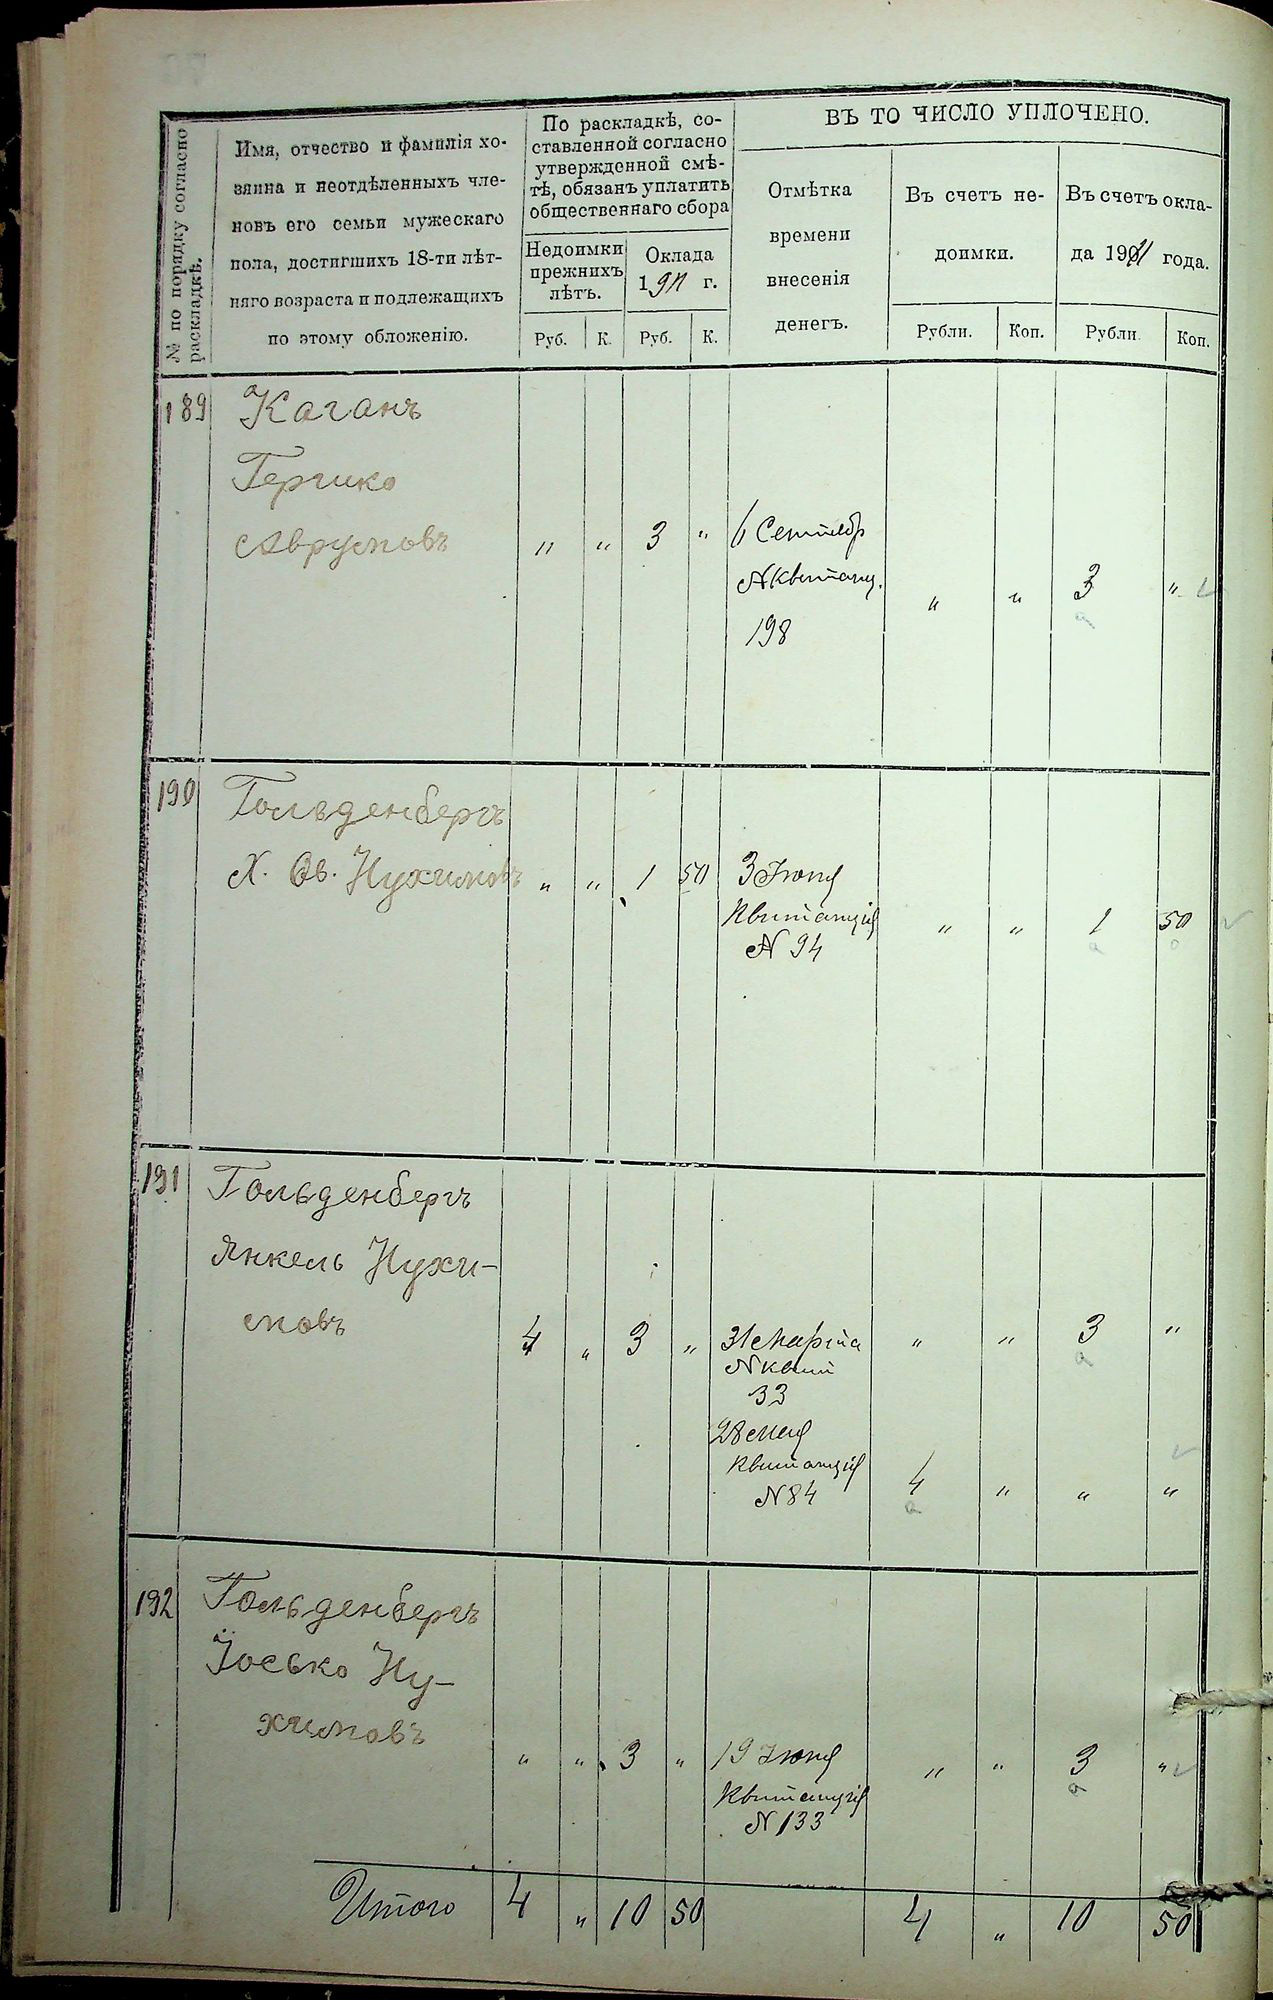 № по порядку согласно
раскладкѣ.
Имя, отчество и фамилія хо-
зяина и неотдѣленныхъ чле-
новъ его семьи мужескаго
пола, достигшихъ 18-ти лѣт-
няго возраста и подлежащихъ
по этому обложенію.
По раскладкѣ, со-
ставленной согласно
утвержденной смѣ-
тѣ, обязанъ уплатить
общественнаго сбора
Недоимки
прежнихъ
лѣтъ.
Оклада
1911 г.
Руб. К. Руб. К.
ВЪ ТО ЧИСЛО УПЛОЧЕНО.
Отмѣтка
времени
внесенія
денегъ.
Въ счетъ не-
доимки.
Въ счетъ окла-
да 1911 года.
Рубли. Коп. Рубли. Коп.
189 Каганъ
Гершко
Аврумовъ " " 3 " 6 Сентябр
№ Квитанц. " " 3 "
198
190 Гольденбергъ
Х. Ов. Нухимовъ " " 1 50 3 Іюня
Квитанція " " 1 50
№ 94
191 Гольденбергъ
Янкель Нухи-
мовъ 4 " 3 " 31 Марта " " 3 "
№ квит
33
28 мая
Квитанція
№ 84 4 " " "
192 Гольденбергъ
Іосько Ну-
химовъ " " 3 " 19 Іюня " " 3 "
Квитанція
№ 133
Итого 4 " 10 50 4 " 10 50